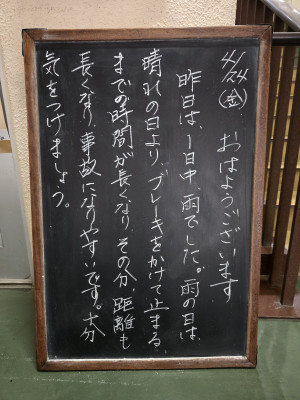 4/24(金)
おはようございます
昨日は、1日中、雨でした。雨の日は、
晴れの日より、ブレーキをかけて止まる、
までの時間が長くなり、その分、距離も
長くなり、事故になりやすいです。十分
気をつけましょう。